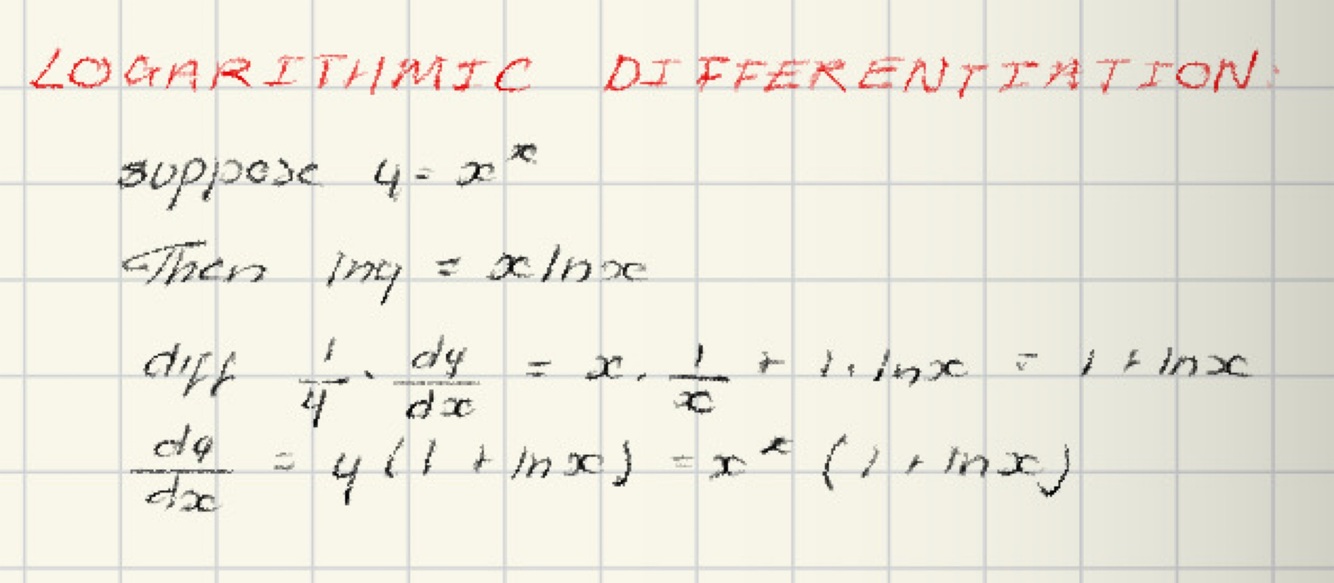 LOGARITHMIC DIFFERENTIATION:
suppose y = x^x
Then lny = xlnx
diff 1/y · dy/dx = x · 1/x + 1 · lnx = 1 + lnx
dy/dx = y(1 + lnx) = x^x (1 + lnx)